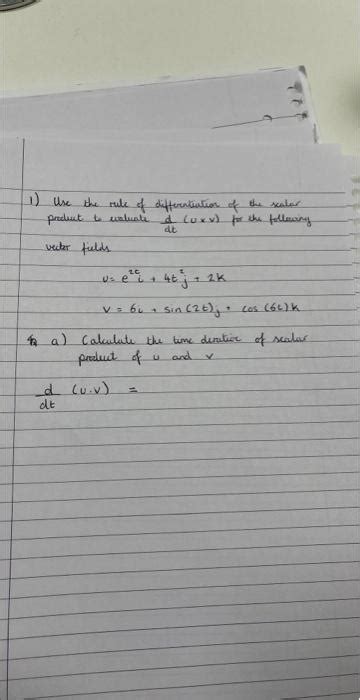 1) Use the rule of differentiation of the scalar
product to evaluate d/dt (u x v) for the following
vector fields
u= e^2t i + 4t^2 j + 2k
v = 6i + sin(2t)j + cos(6t)k
a) Calculate the time derative of scalar
product of u and v
d/dt (u.v) =